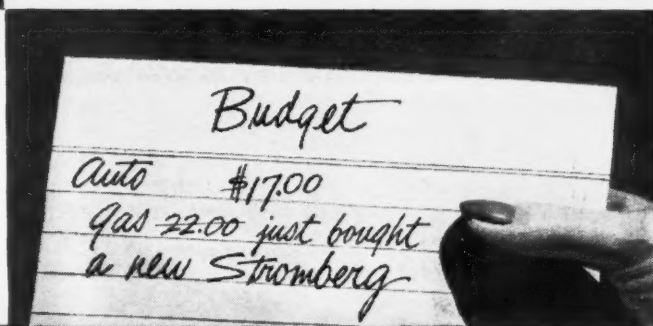 Budget
Auto $17.00
gas 22.00 just bought
a new Stromberg